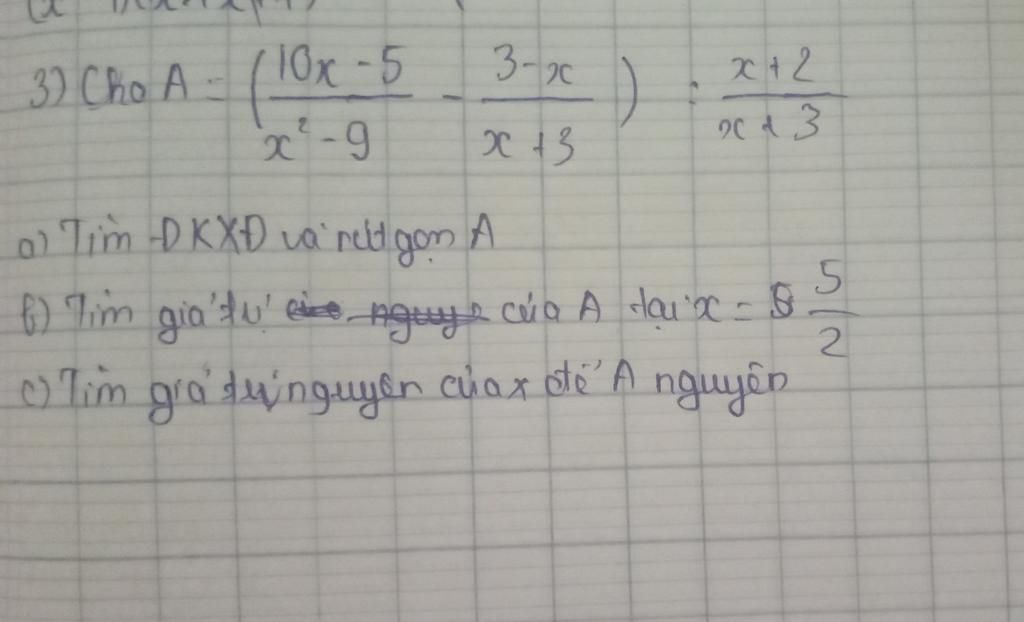 3) Cho A = ( (10x - 5)/(x² - 9) - (3 - x)/(x + 3) ) : (x + 2)/(x + 3)
a) Tìm ĐKXĐ và rút gọn A
b) Tìm giá trị của A tại x = 5/2
c) Tìm giá trị nguyên của x để A nguyên